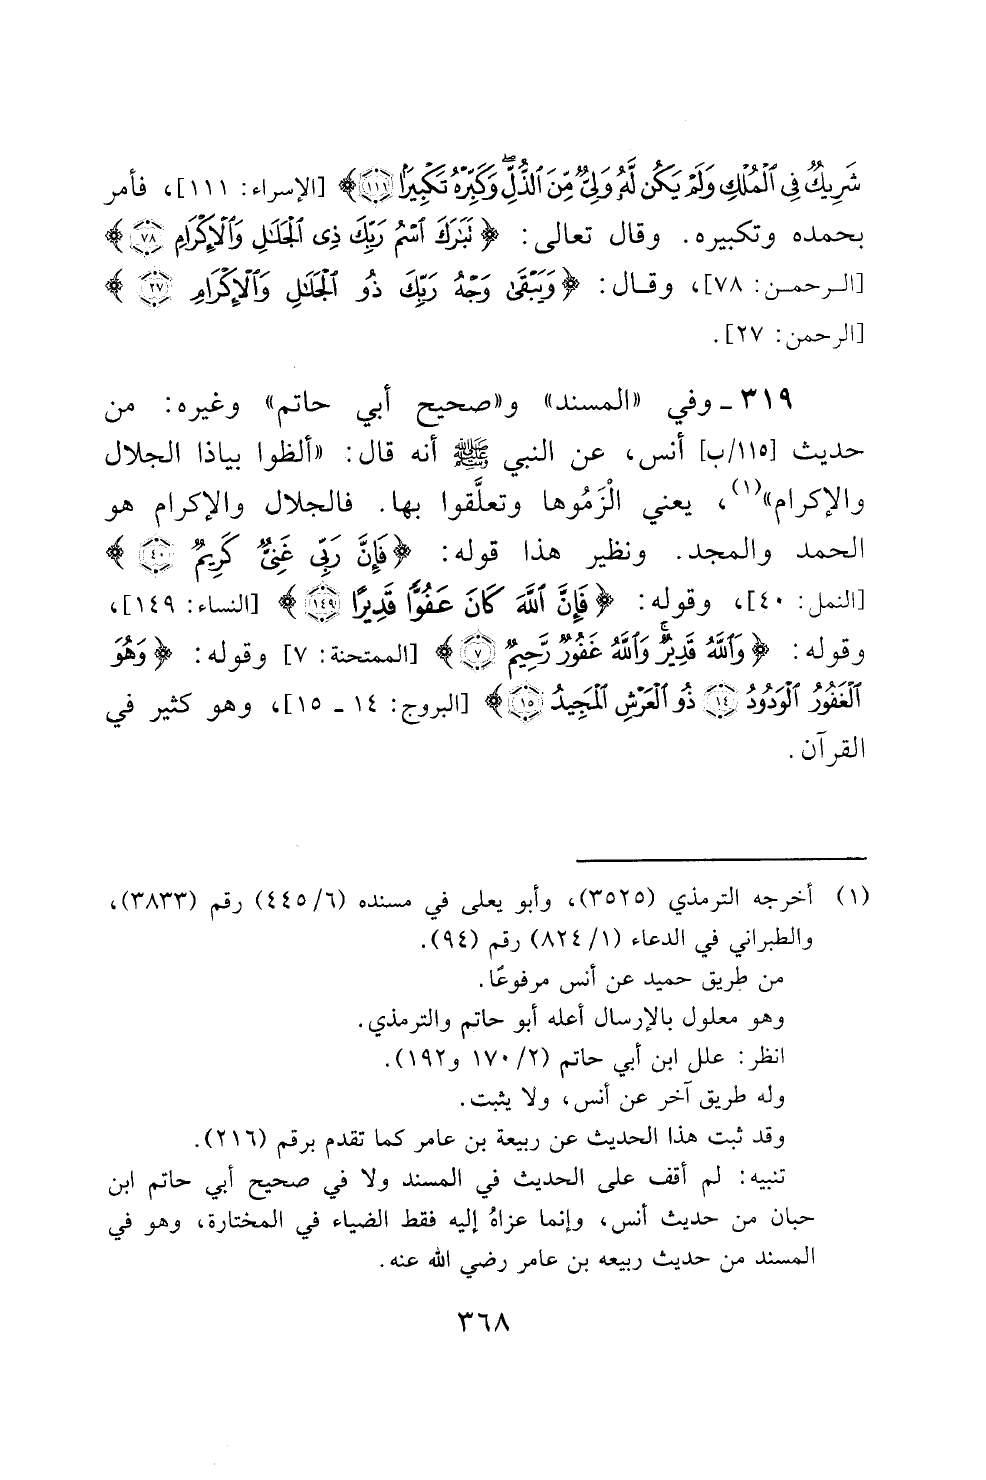 شَرِيكٌ فِي ٱلْمُلْكِ وَلَمْ يَكُن لَّهُۥ وَلِيٌّ مِّنَ ٱلذُّلِّ ۖ وَكَبِّرْهُ تَكْبِيرًۢا ﴿١١١﴾ ﴾ [الإسراء: ١١١]، فأمر
بحمده وتكبيره. وقال تعالى: ﴿ تَبَٰرَكَ ٱسْمُ رَبِّكَ ذِى ٱلْجَلَٰلِ وَٱلْإِكْرَامِ ﴿٧٨﴾ ﴾
[الرحمن: ٧٨]، وقال: ﴿ وَيَبْقَىٰ وَجْهُ رَبِّكَ ذُو ٱلْجَلَٰلِ وَٱلْإِكْرَامِ ﴿٢٧﴾ ﴾
[الرحمن: ٢٧].
٣١٩ ـ وفي «المسند» و«صحيح أبي حاتم» وغيره: من
حديث [١١٥/ب] أنس، عن النبي ﷺ أنه قال: «ألظوا بياذا الجلال
والإكرام»(١)، يعني الْزَمُوها وتعلَّقوا بها. فالجلال والإكرام هو
الحمد والمجد. ونظير هذا قوله: ﴿ فَإِنَّ رَبِّى غَنِىٌّ كَرِيمٌ ﴿٤٠﴾ ﴾
[النمل: ٤٠]، وقوله: ﴿ فَإِنَّ ٱللَّهَ كَانَ عَفُوًّا قَدِيرًا ﴿١٤٩﴾ ﴾ [النساء: ١٤٩]،
وقوله: ﴿ وَٱللَّهُ قَدِيرٌ ۚ وَٱللَّهُ غَفُورٌ رَّحِيمٌ ﴿٧﴾ ﴾ [الممتحنة: ٧] وقوله: ﴿ وَهُوَ
ٱلْغَفُورُ ٱلْوَدُودُ ﴿١٤﴾ ذُو ٱلْعَرْشِ ٱلْمَجِيدُ ﴿١٥﴾ ﴾ [البروج: ١٤ ـ ١٥]، وهو كثير في
القرآن.
(١) أخرجه الترمذي (٣٥٢٥)، وأبو يعلى في مسنده (٤٤٥/٦) رقم (٣٨٣٣)،
والطبراني في الدعاء (٨٢٤/١) رقم (٩٤).
من طريق حميد عن أنس مرفوعًا.
وهو معلول بالإرسال أعله أبو حاتم والترمذي.
انظر: علل ابن أبي حاتم (١٧٠/٢ و١٩٢).
وله طريق آخر عن أنس، ولا يثبت.
وقد ثبت هذا الحديث عن ربيعة بن عامر كما تقدم برقم (٢١٦).
تنبيه: لم أقف على الحديث في المسند ولا في صحيح أبي حاتم ابن
حبان من حديث أنس، وإنما عزاهُ إليه فقط الضياء في المختارة، وهو في
المسند من حديث ربيعه بن عامر رضي الله عنه.
٣٦٨